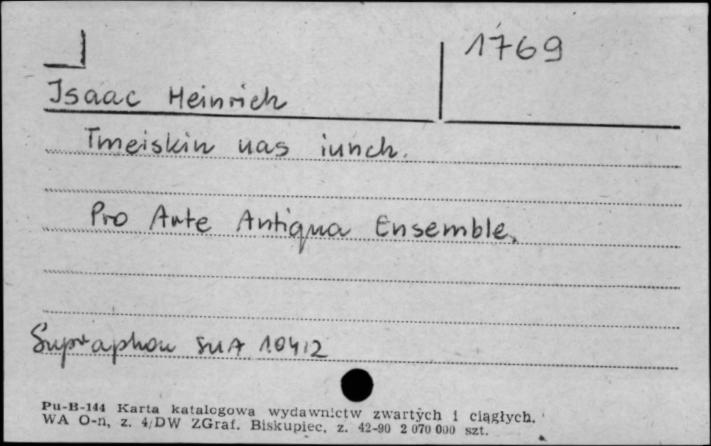 1769
Isaac Heinrich
Tmeiskin uas iunch.
Pro Arte Antiqua Ensemble.
Supraphon SUA 10412
Pu-B-144 Karta katalogowa wydawnictw zwartych i ciągłych.
WA O-n, z. 4/DW ZGraf. Biskupiec, z. 42-90 2 070 000 szt.